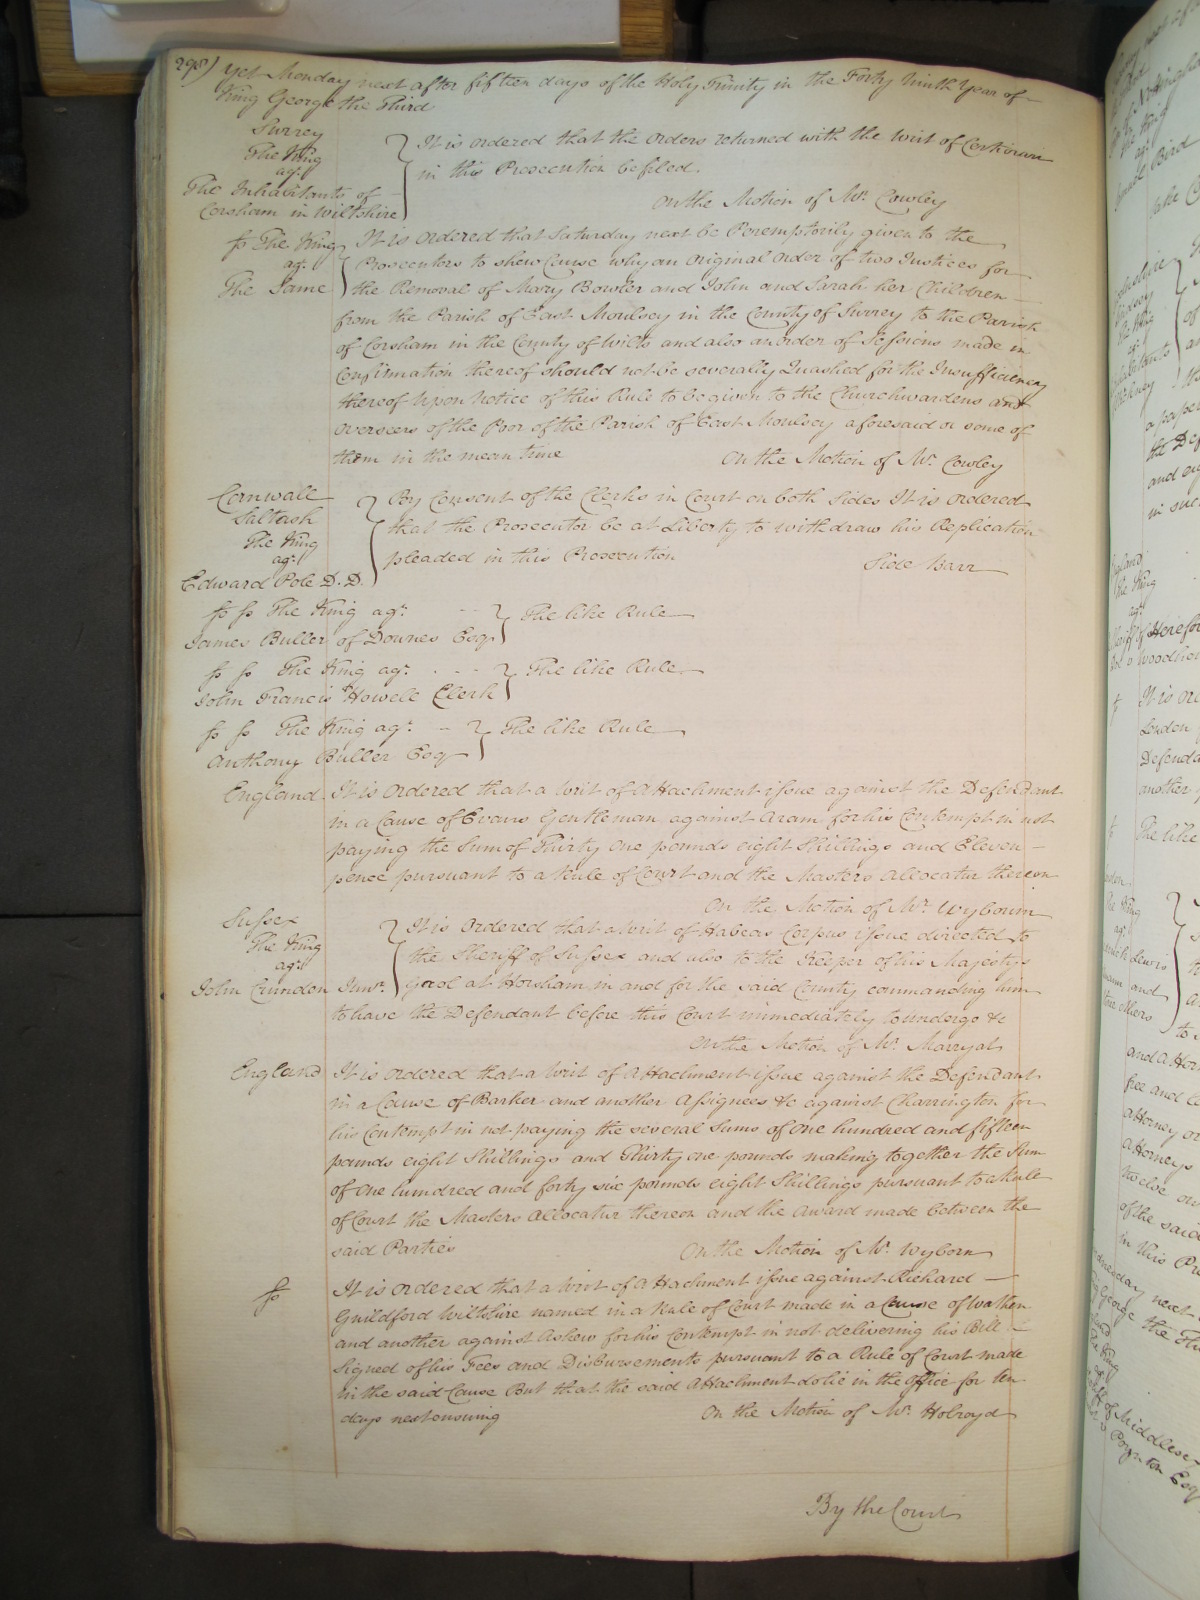 298) Yet Monday next after fifteen days of the Holy Trinity in the Forty Ninth Year of
King George the Third
Surrey
The King
agt.
The Inhabitants of
Corsham in Wiltshire
It is ordered that the Orders returned with the Writ of Certiorari
in this Prosecution be filed.
On the Motion of Mr. Cowley
ss The King
agt.
The Same
It is Ordered that Saturday next be Peremptorily given to the
Prosecutors to shew Cause why an Original Order of two Justices for
the Removal of Mary Bowler and John and Sarah her Children
from the Parish of East Moulsey in the County of Surrey to the Parish
of Corsham in the County of Wilts and also an order of Sessions made in
Confirmation thereof should not be severally Quashed for the Insufficiency
thereof Upon Notice of this Rule to be given to the Churchwardens and
Overseers of the Poor of the Parish of East Moulsey aforesaid or some of
them in the mean time
On the Motion of Mr. Cowley
Cornwall
Saltash
The King
agt.
Edward Pole D. D.
By Consent of the Clerks in Court on both Sides It is ordered
that the Prosecutor be at Liberty to withdraw his Replication
pleaded in this Prosecution
Side Barr
ss ss The King agt.
James Buller of Downes Esq
The like Rule
ss ss The King agt.
John Francis Howell Clerk
The like Rule
ss ss The King agt.
Anthony Buller Esq
The like Rule
England
It is Ordered that a Writ of Attachment issue against the Defendant
in a Cause of Evans Gentleman against Aram for his Contempt in not
paying the Sum of Thirty One pounds eight Shillings and Eleven
pence pursuant to a Rule of Court and the Masters Allocatur thereon
On the Motion of Mr. Wyborn
Sussex
The King
agt.
John Crundon Junr.
It is Ordered that a Writ of Habeas Corpus issue directed to
the Sheriff of Sussex and also to the Keeper of his Majestys
Gaol at Horsham in and for the said County commanding him
to have the Defendant before this Court immediately to undergo &c
On the Motion of Mr. Marryat
England
It is ordered that a Writ of Attachment issue against the Defendant
in a Cause of Barker and another Assignees &c against Charrington for
his Contempt in not paying the several Sums of One hundred and fifteen
pounds eight Shillings and Thirty one pounds making together the Sum
of One hundred and forty six pounds eight Shillings pursuant to a Rule
of Court the Masters Allocatur thereon and the Award made between the
said Parties
On the Motion of Mr. Wyborn
ss
It is Ordered that a Writ of Attachment issue against Richard
Guildford Wiltshire named in a Rule of Court made in a Cause of Wathen
and another against Askew for his Contempt in not delivering his Bill
Signed of his Fees and Disbursements pursuant to a Rule of Court made
in the said Cause But that the said Attachment do lie in the Office for ten
days next ensuing
On the Motion of Mr. Holroyd
By the Court